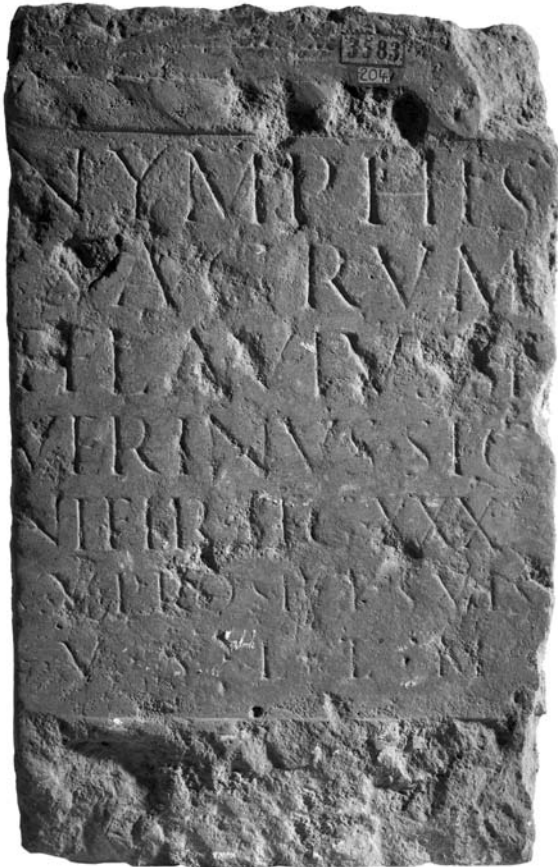 3583
204
NYMPHIS
SACRVM
FLAVIVS SE
VERINVS SIG
NIFER LEG XXX
V V PRO SE ET SVIS
V S L L M